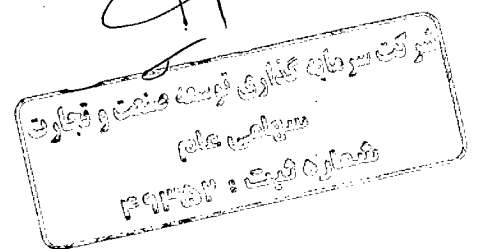 شرکت سرمایه گذاری توسعه صنعت و تجارت
سهامی عام
شماره ثبت : ۴۹۳۵۲